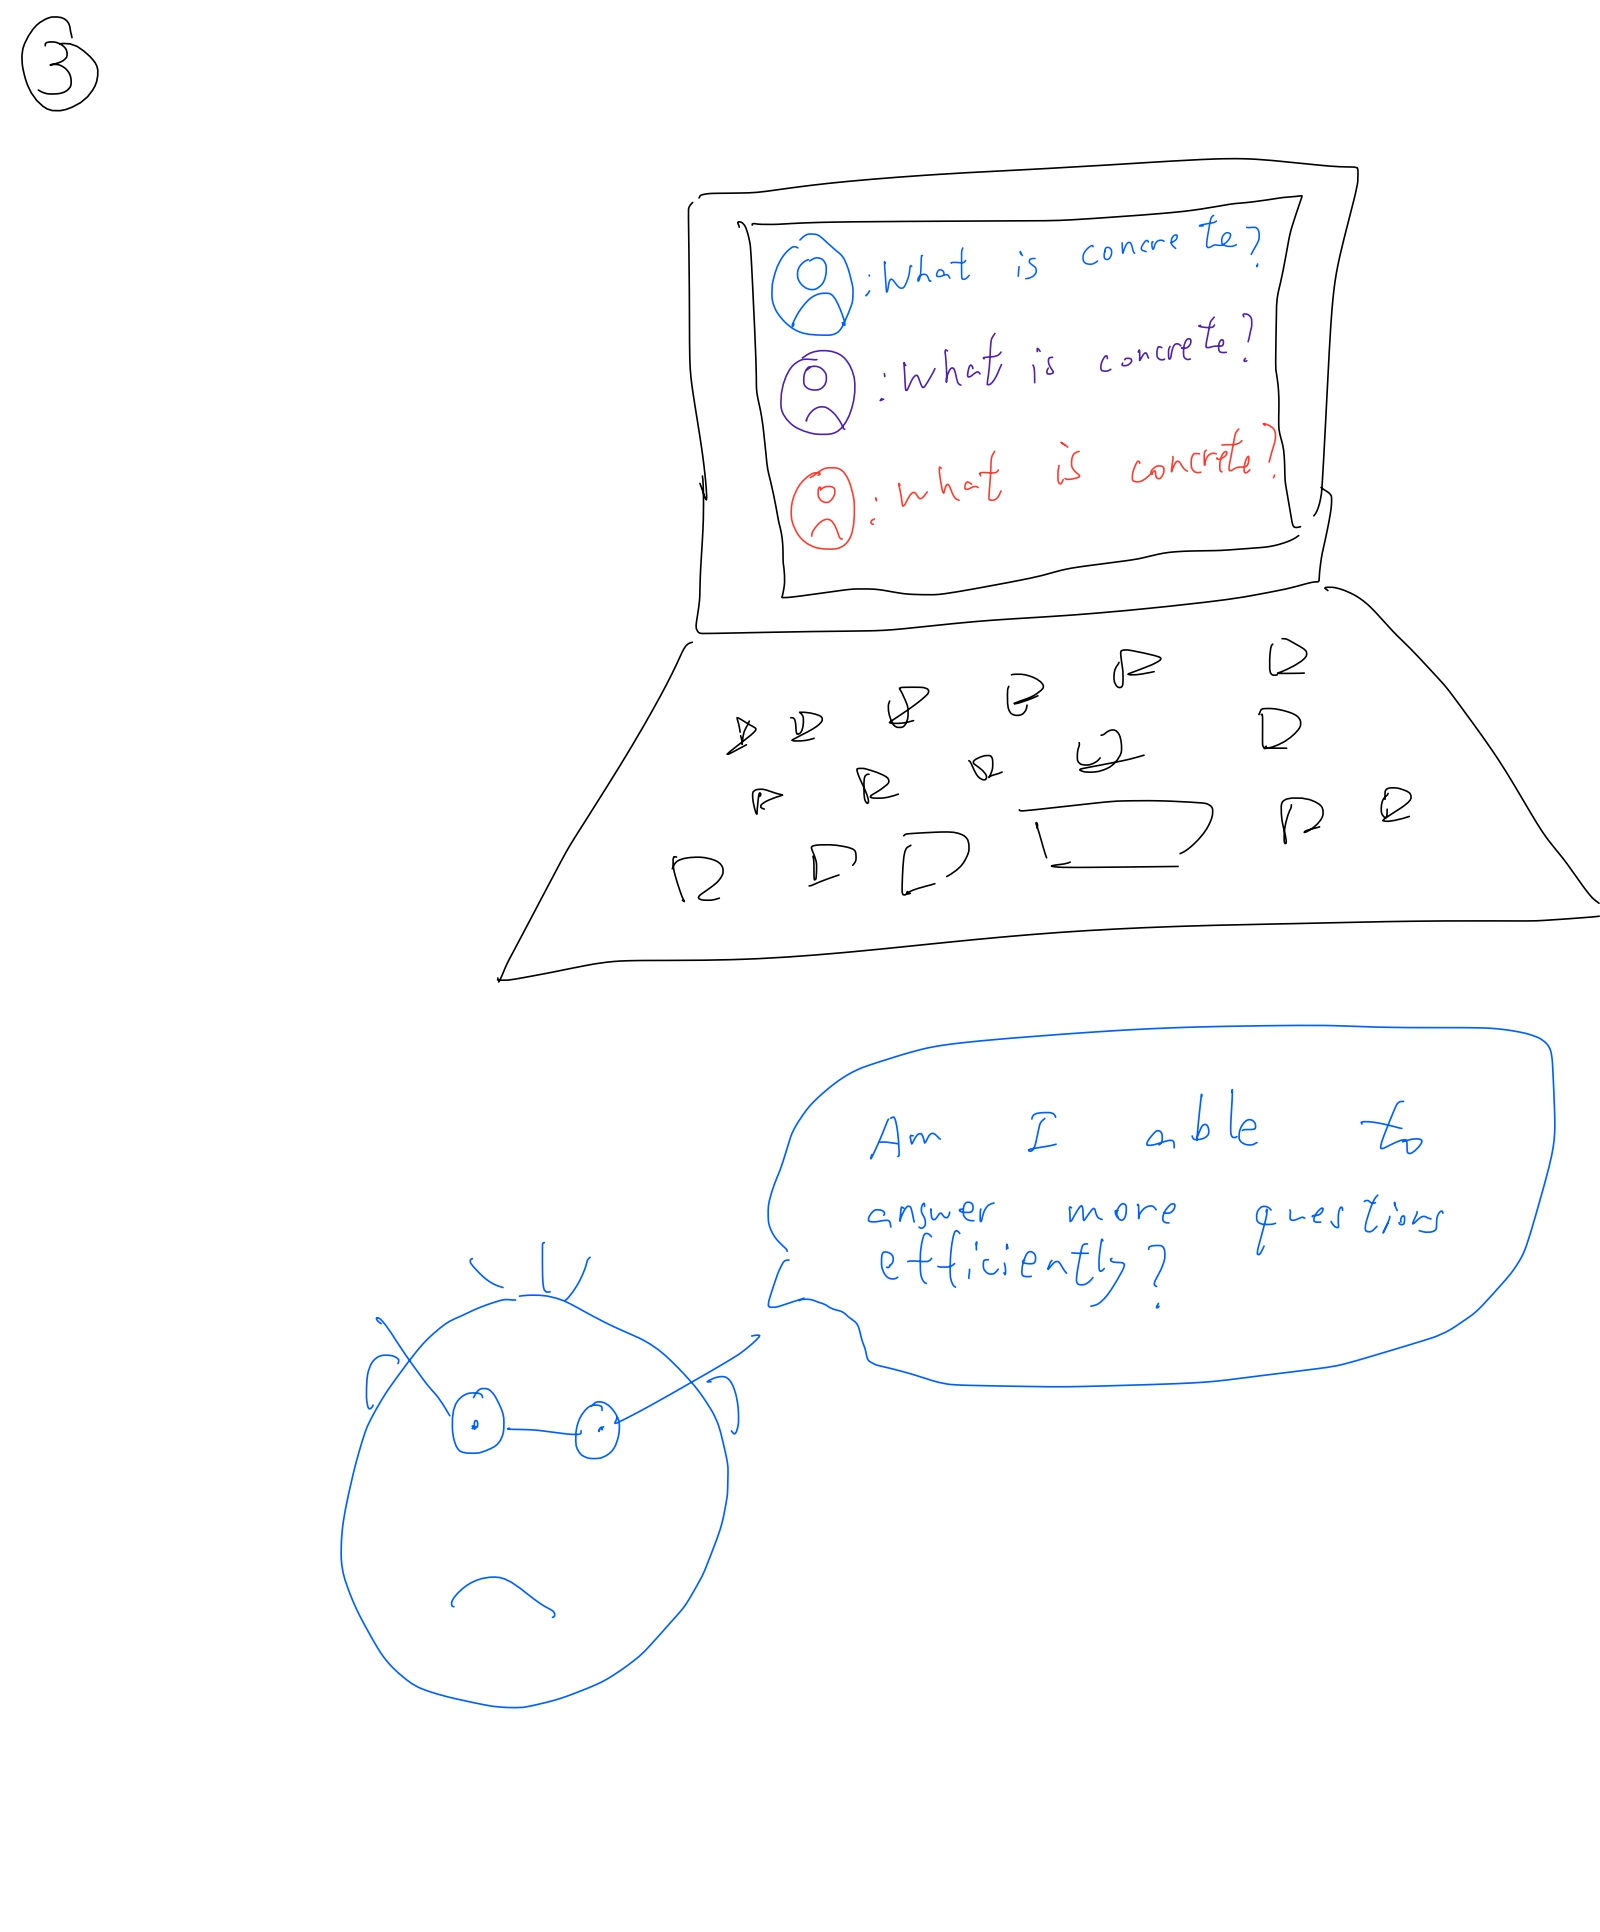 3
: What is concrete?
: What is concrete?
: What is concrete?
Am I able to
answer more questions
efficiently?